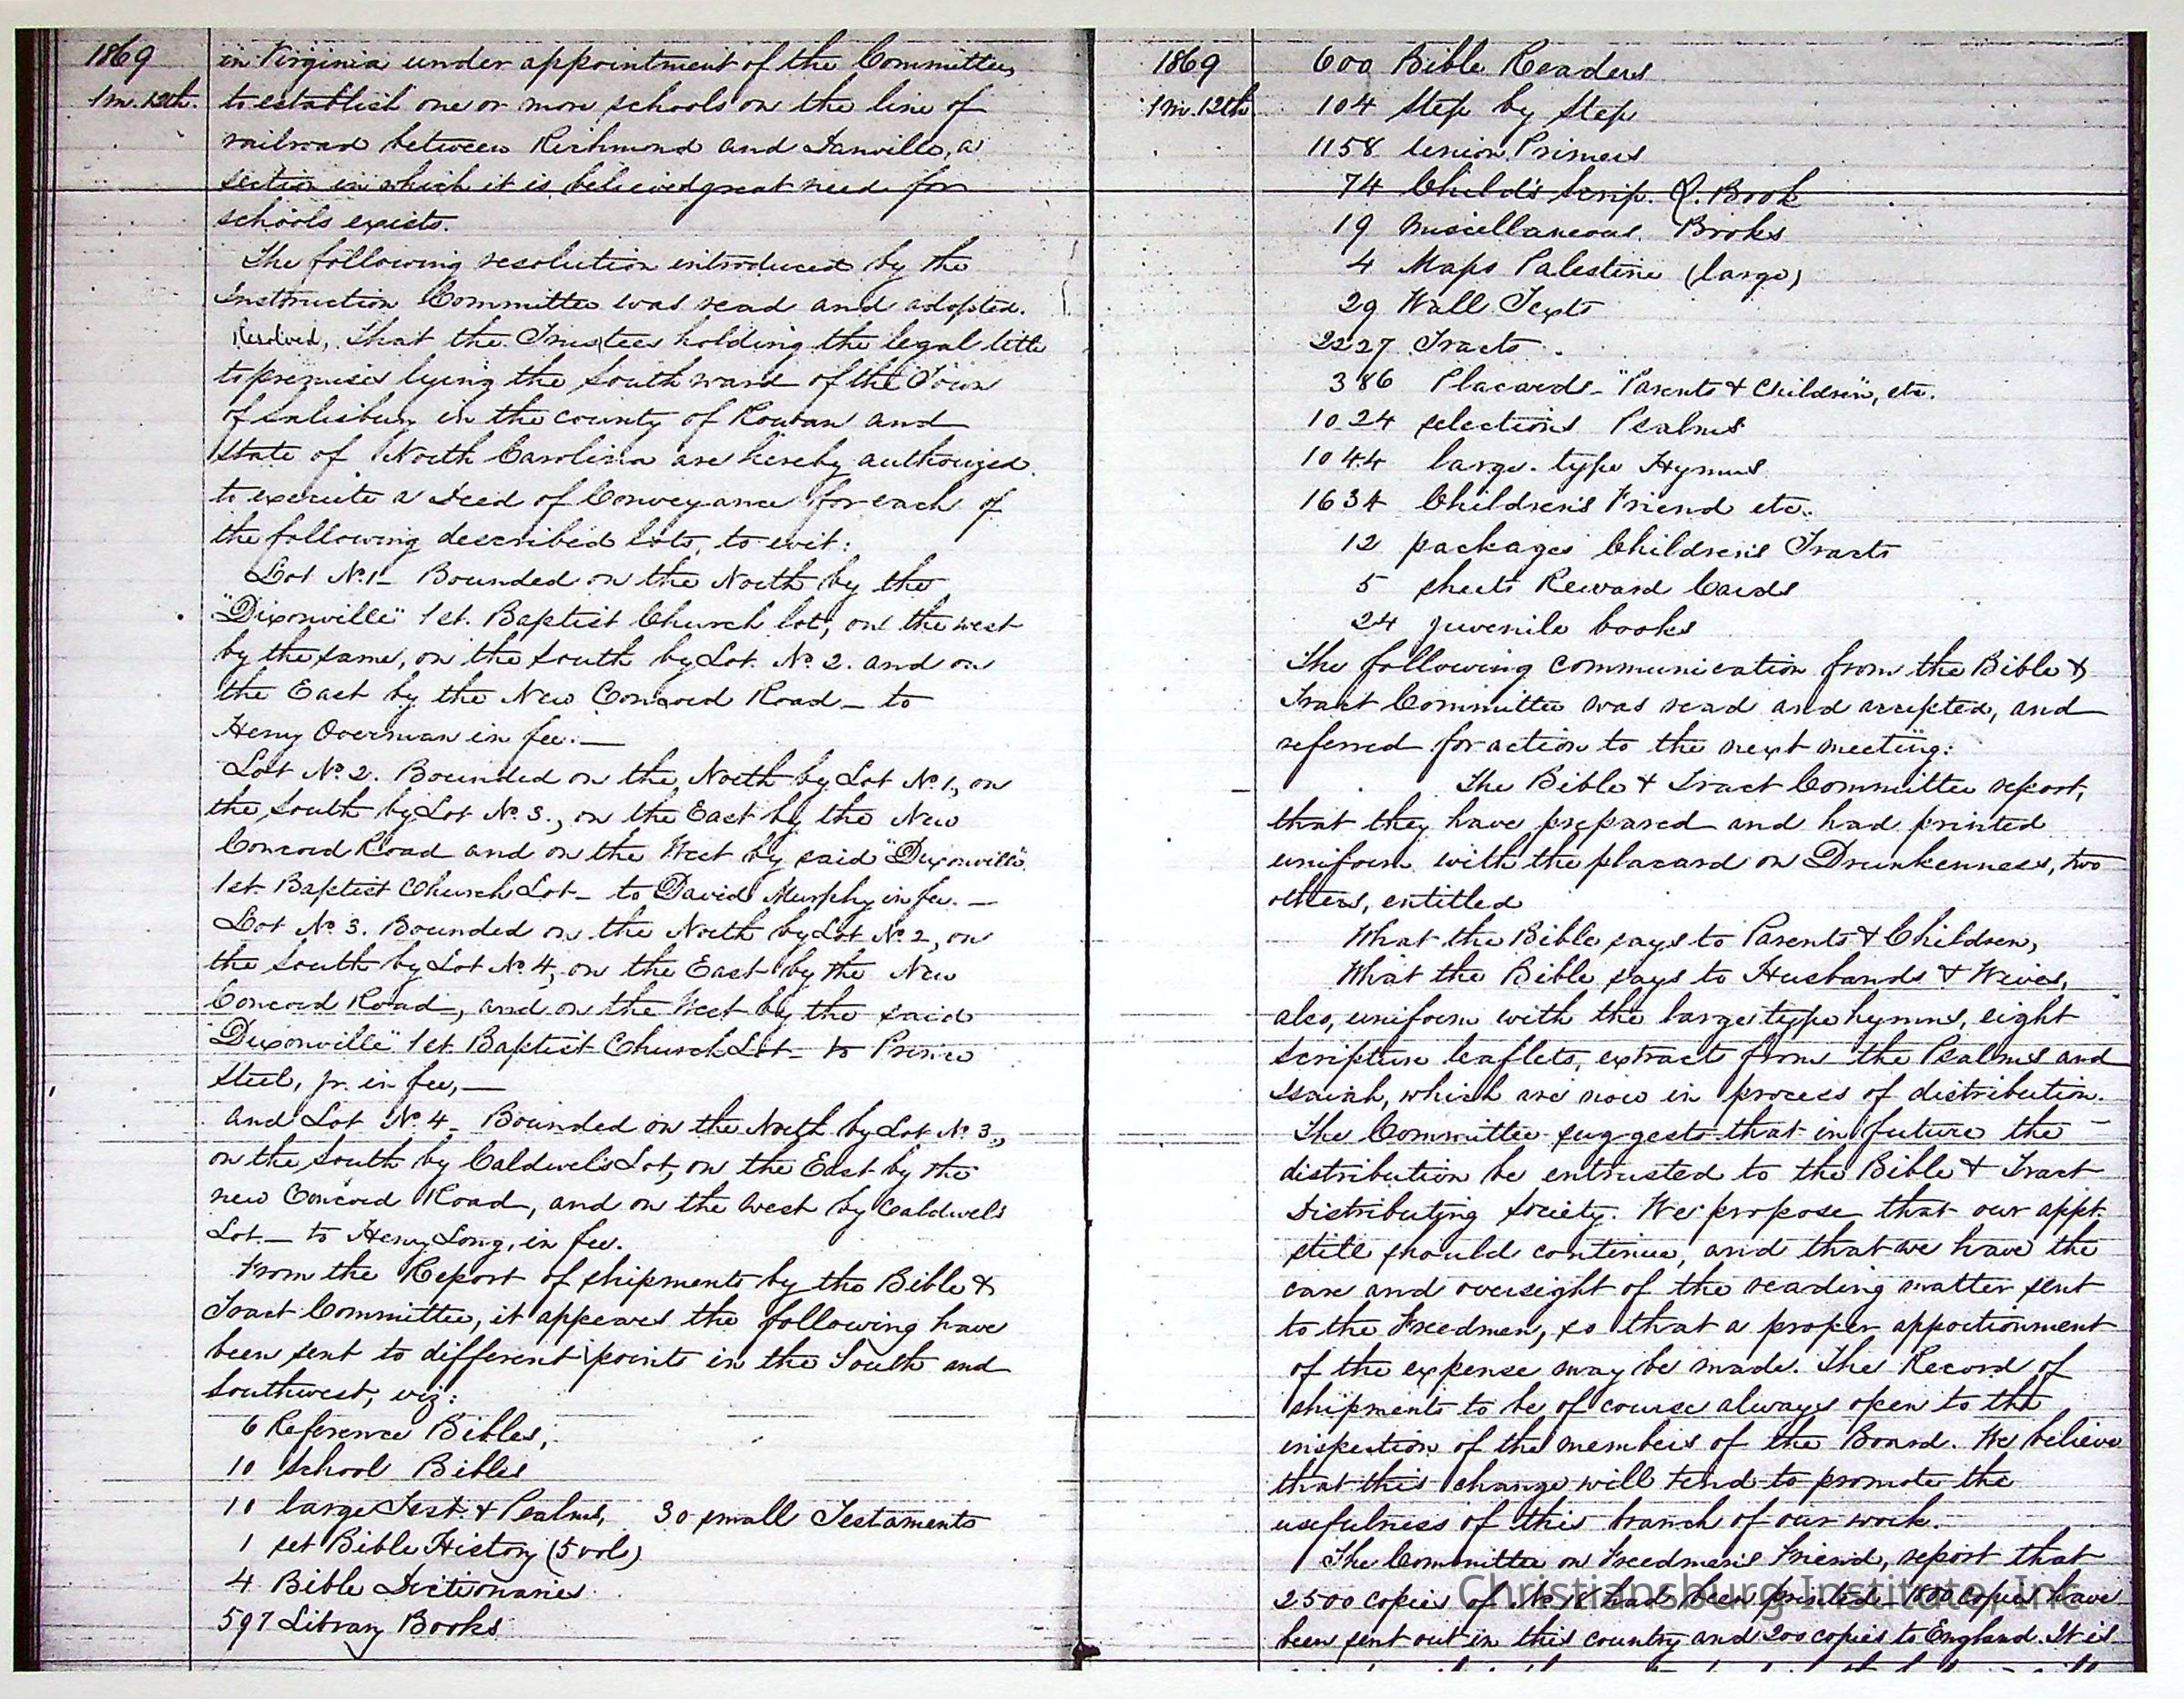 1869
1m. 12th.
in Virginia under appointment of the Committee,
to establish one or more schools on the line of
railroad between Richmond and Danville, a
section in which it is believed great need for
schools exists.
The following resolution introduced by the
Instruction Committee was read and adopted.
Resolved, That the Trustees holding the legal title
to premises lying the South ward of the Town
of Salisbury in the county of Rowan and
State of North Carolina are hereby authorized
to execute a Deed of Conveyance for each of
the following described lots, to wit:
Lot No. 1 - Bounded on the North by the
"Dixonville" 1st. Baptist Church lot, on the west
by the same, on the South by Lot No. 2. and on
the East by the New Concord Road - to
Henry Overman in fee. -
Lot No. 2. Bounded on the North by Lot No. 1, on
the South by Lot No. 3., on the East by the New
Concord Road and on the West by said "Dixonville"
1st. Baptist Church Lot - to David Murphy in fee. -
Lot No. 3. Bounded on the North by Lot No. 2, on
the South by Lot No. 4, on the East by the New
Concord Road, and on the West by the said
"Dixonville" 1st. Baptist Church Lot - to Prince
Steel, jr. in fee, -
and Lot No. 4 - Bounded on the North by Lot No. 3.,
on the South by Caldwel's Lot, on the East by the
new Concord Road, and on the west by Caldwels
Lot. - to Henry Long, in fee.
From the Report of shipments by the Bible &
Tract Committee, it appears the following have
been sent to different points in the South and
Southwest, viz:
6 Reference Bibles,
10 School Bibles
10 large Test. & Psalms, 30 small Testaments
1 set Bible History (5 vols)
4 Bible Dictionaries
597 Library Books
1869
1m. 12th
600 Bible Readers
104 Step by Step
1158 Union Primers
74 Child's Scrip. Q. Book
19 Miscellaneous Books
4 Maps Palestine (large)
29 Wall Texts
2227 Tracts.
386 Placards - "Parents & Children", etc.
1024 selections Psalms
1044 large-type Hymns
1634 Children's Friend etc.
12 packages Children's Tracts
5 sheets Reward Cards
24 juvenile books
The following communication from the Bible &
Tract Committee was read and accepted, and
referred for action to the next meeting:
The Bible & Tract Committee report,
that they have prepared and had printed
uniform with the placard on Drunkenness, two
others, entitled
What the Bible says to Parents & Children,
What the Bible says to Husbands & Wives,
also, uniform with the large type hymns, eight
scripture leaflets, extract from the Psalms and
Isaiah, which are now in process of distribution.
The Committee suggests that in future the
distribution be entrusted to the Bible & Tract
Distributing Society. We propose that our appt.
still should continue, and that we have the
care and oversight of the reading matter sent
to the Freedmen, so that a proper apportionment
of the expense may be made. The Record of
shipments to be of course always open to the
inspection of the members of the Board. We believe
that this change will tend to promote the
usefulness of this branch of our work.
The Committee on Freedmen's Friend, report that
2500 copies of No. 18 had been printed 1800 copies have
been sent out in this country and 200 copies to England. It is
Christiansburg Institute, Inc.